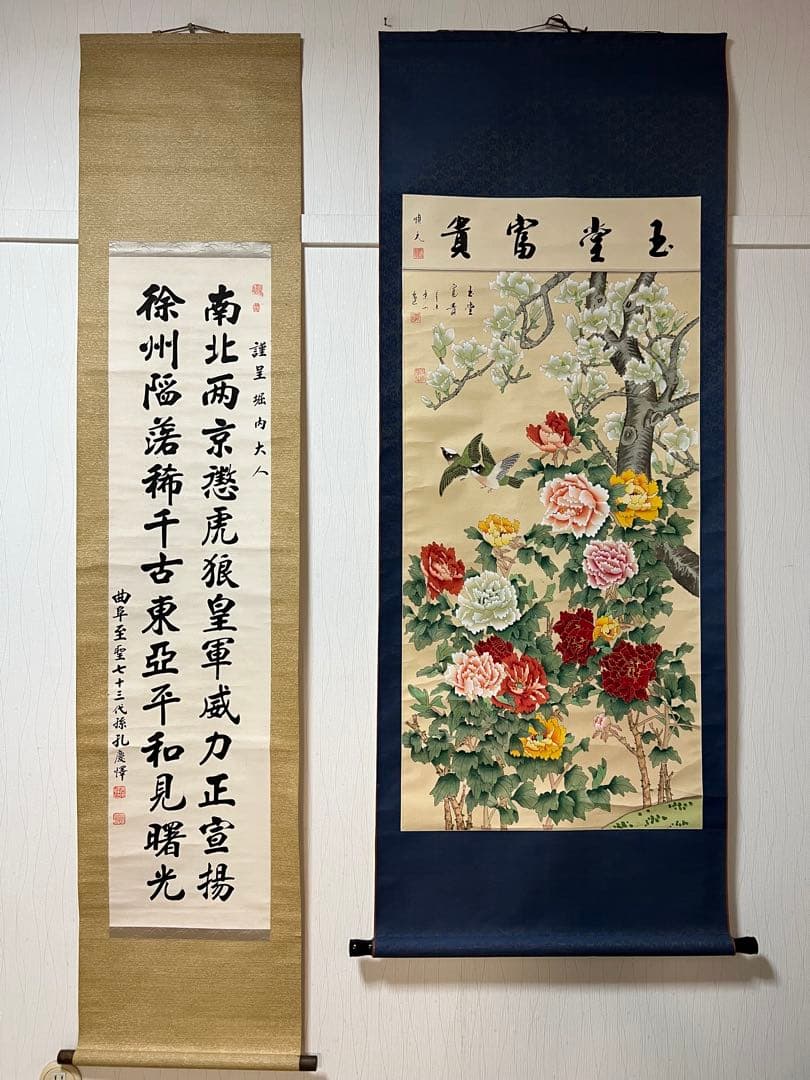 謹呈 堀内大人
南北两京懲虎狼皇軍威力正宣揚
徐州陥落稀千古東亞平和見曙光
曲阜至聖七十三代孫孔慶懌
玉堂富貴
玉堂
富貴